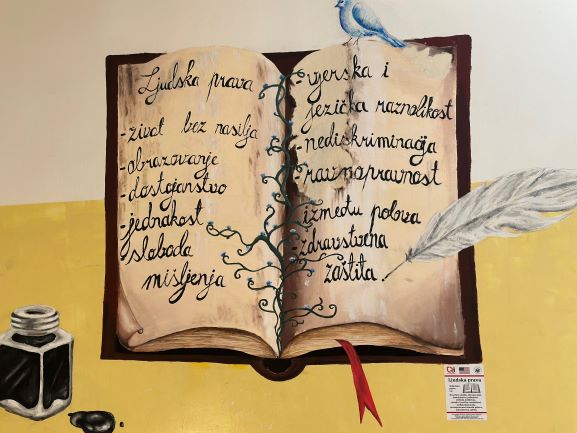 Ljudska prava
-život bez nasilja
-obrazovanje
-dostojanstvo
-jednakost
-sloboda
mišljenja
-vjerska i
jezička raznolikost
-nediskriminacija
-ravnopravnost
između polova
-zdravstvena
zaštita.
Ljudska prava